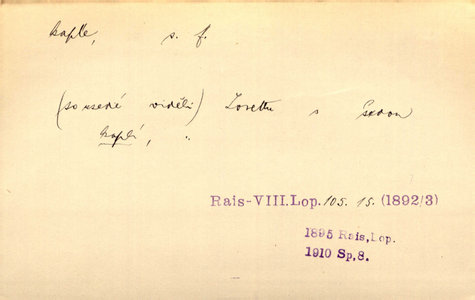 kaple, s. f.
(sousedé viděli) Loretu s
kaplí, "
Rais-VIII.Lop. 105. 15. (1892/3)
1895 Rais,Lop.
1910 Sp,8.